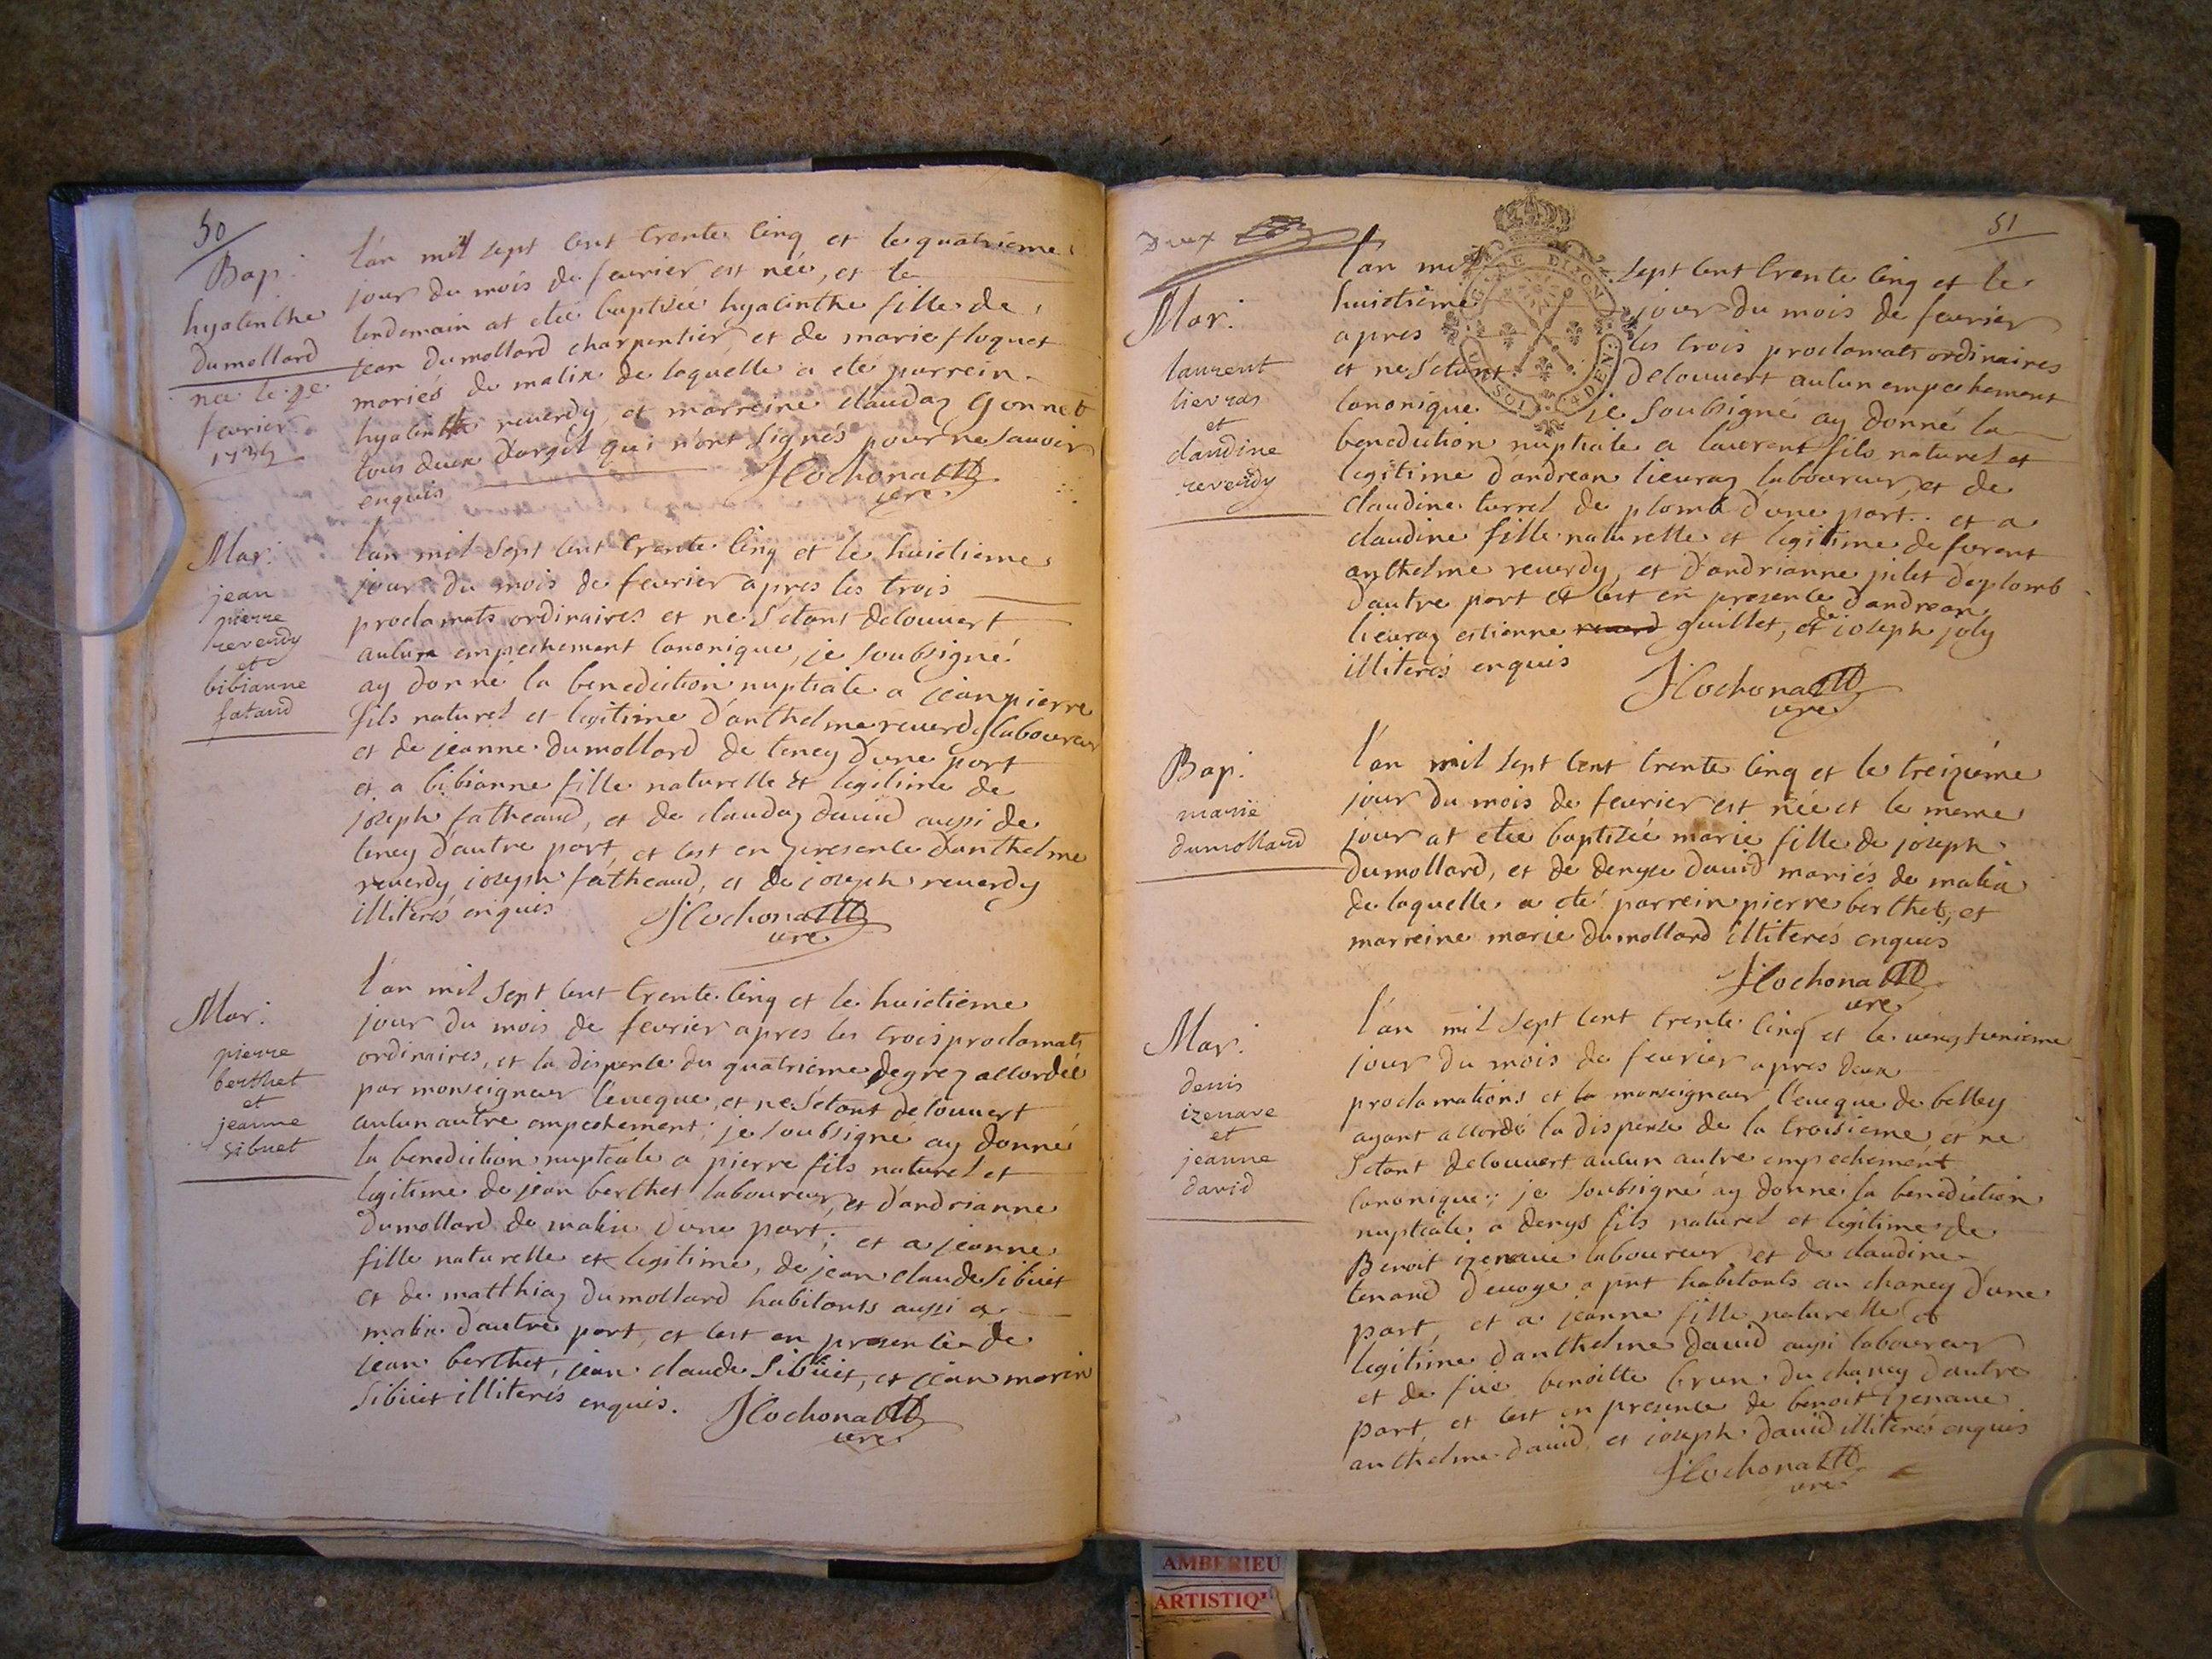 50
Bap:
hyacinthe
dumollard
née le 4e
fevrier
1735
l'an mil sept cent trente cinq et le quatrieme
jour du mois de feurier est née, et le
lendemain at eteé baptiseé hyacinthe fille de
jean dumollard charpentier, et de marie floquet
mariés de malix de laquelle a eté parrein
hyacinthe reuerdy, et marreine claudaz Gonnet
tous deux d'argil qui n'ont signés pour ne sauoir
enquis
JCochonatt
curé
Mar:
jean
pierre
reverdy
et
bibianne
fataud
l'an mil sept cent trente cinq et le huictieme
jour du mois de feurier apres les trois
proclamats ordinaires et ne s'etant decouuert
aulcun empechement canonique, je soubsigné
ay donné la benediction nuptiale a jean pierre
fils naturel et legitime d'anthelme reuerdy laboureur
et de jeanne dumollard de teney d'une part
et a bibianne fille naturelle et legitime de
joseph fatheaud, et de claudaz dauid aussi de
teney d'autre part, et c'est en presence d'anthelme
reuerdy, joseph fatheaud, et de joseph reuerdy
illiterés enquis
JCochonatt
curé
Mar:
pierre
berthet
et
jeanne
sibuet
l'an mil sept cent trente cinq et le huictieme
jour du mois de feurier apres les trois proclamats
ordinaires, et la dispense du quatrieme degrez accordéé
par monseigneur l'eueque, et ne s'etant decouuert
aulcun autre empechement; je soubsigné ay donné
la benediction nuptiale a pierre fils naturel et
legitime de jean berthet laboureur, et d'andrianne
dumollard de malix d'une part; et a jeanne
fille naturelle et legitime, de jean claude sibuet
et de matthiaz dumollard habitants aussi a
malix d'autre part, et c'est en presence de
jean berthet, jean claude sibuet, et jean marin
sibuet illiterés enquis.
JCochonatt
curé
51
Deux
Mar:
laurent
lievraz
et
claudine
reverdy
l'an mil sept cent trente cinq et le
huictieme jour du mois de feurier
apres les trois proclamats ordinaires
et ne s'etant decouuert aulcun empechement
canonique je soubsigné ay donné la
benediction nuptiale a laurent fils naturel et
legitime d'andrean lieuraz laboureur, et de
claudine turrel de plomb d'une part. et a
claudine fille naturelle et legitime de furent
anthelme reuerdy, et d'andrianne pilet de plomb
d'autre part et c'est en presence d'andrean
lieuraz estienne guillet, et de joseph joly
illiterés enquis
JCochonatt
curé
Bap:
marie
dumollard
l'an mil sept cent trente cinq et le treizieme
jour du mois de feurier est née et le meme
jour at eteé baptizéé marie fille de joseph
dumollard, et de denyse dauid mariés de malix
de laquelle a eté parrein pierre berthet, et
marreine marie dumollard illiterés enquis
JCochonatt
curé
Mar:
denis
izenave
et
jeanne
david
l'an mil sept cent trente cinq et le vingt unieme
jour du mois de feurier apres deux
proclamations et la monseigneur l'eueque de belley
ayant accordé la dispense de la troisieme, et ne
s'etant decouuert aulcun autre empechement
canonique; je soubsigné ay donné la benediction
nuptiale a denys fils naturel et legitime de
Benoit izenaue laboureur et de claudine
tenand d'euoge a pnt habitants au chaney d'une
part, et a jeanne fille naturelle et
legitime d'anthelme dauid aussi laboureur
et de fue benoitte brun du chaney d'autre
part, et c'est en presence de benoit izenaue
anthelme dauid, et joseph dauid illiterés enquis
JCochonatt
curé
AMBERIEU
ARTISTIQ